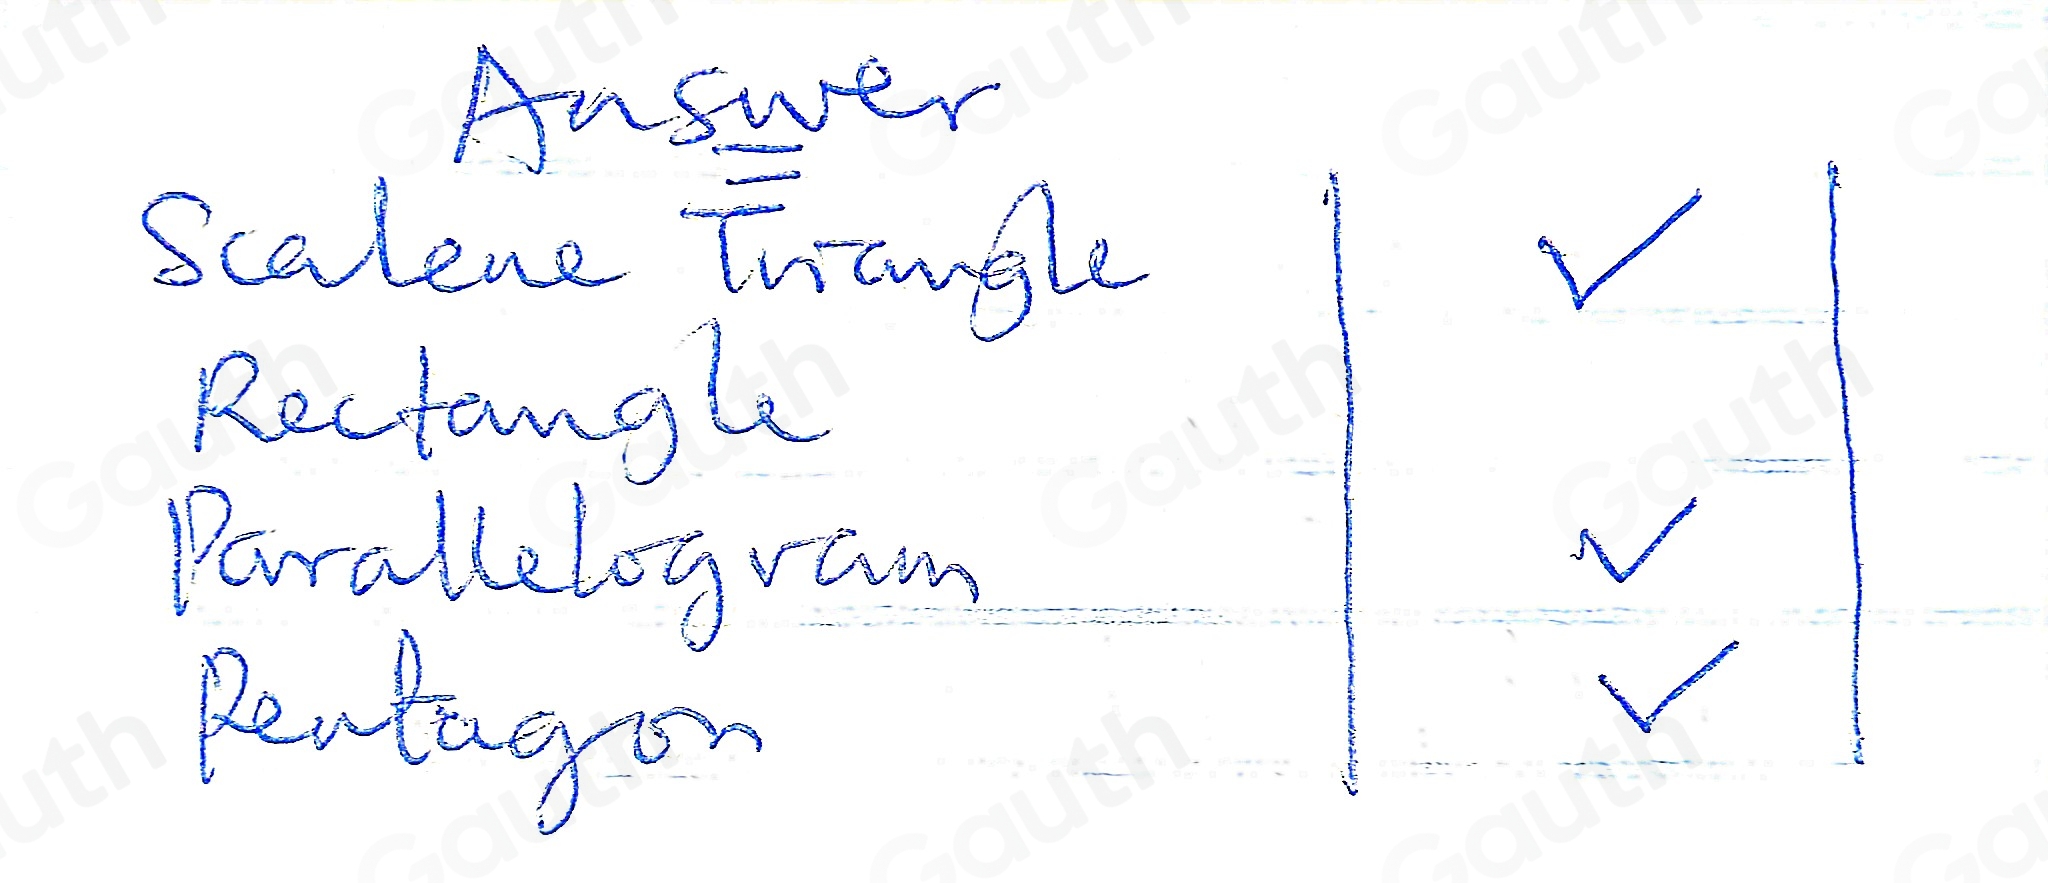 Answer
Scalene Triangle ✓
Rectangle
Parallelogram ✓
Pentagon ✓